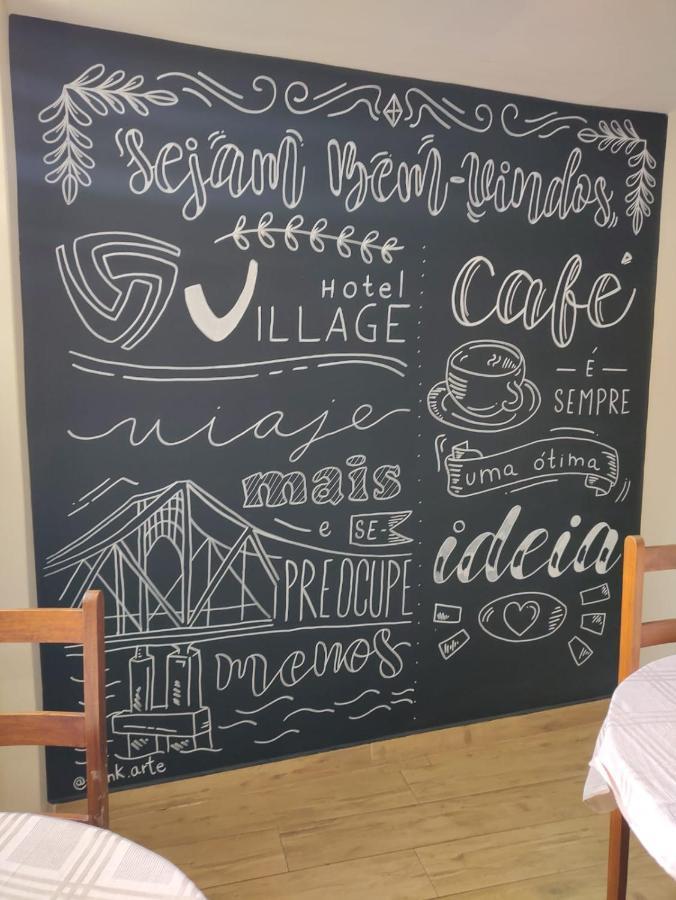 Sejam Bem-Vindos
Hotel
VILLAGE
viaje
mais
e SE-
PREOCUPE
menos
Café
É
SEMPRE
uma ótima
ideia